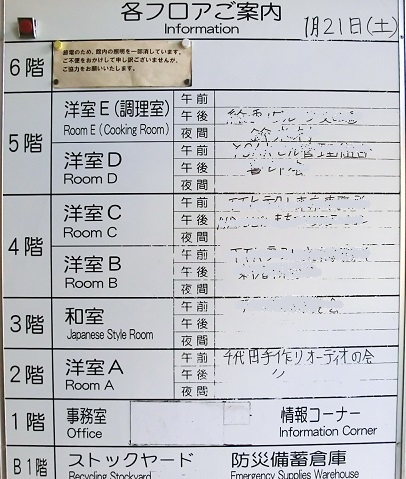 各フロアご案内
Information
1月21日(土)
6階
節電のため、館内の照明を一部消しています。
ご不便をおかけして申し訳ございませんが、
ご協力をお願いいたします。
5階
洋室E(調理室)
Room E (Cooking Room)
午前
午後
夜間
洋室D
Room D
午前
午後
夜間
4階
洋室C
Room C
午前
午後
夜間
洋室B
Room B
午前
午後
夜間
3階
和室
Japanese Style Room
午前
午後
夜間
2階
洋室A
Room A
午前 千代田手作りオーディオの会
午後 〃
夜間
1階
事務室
Office
情報コーナー
Information Corner
B1階
ストックヤード
Recycling Stockyard
防災備蓄倉庫
Emergency Supplies Warehouse